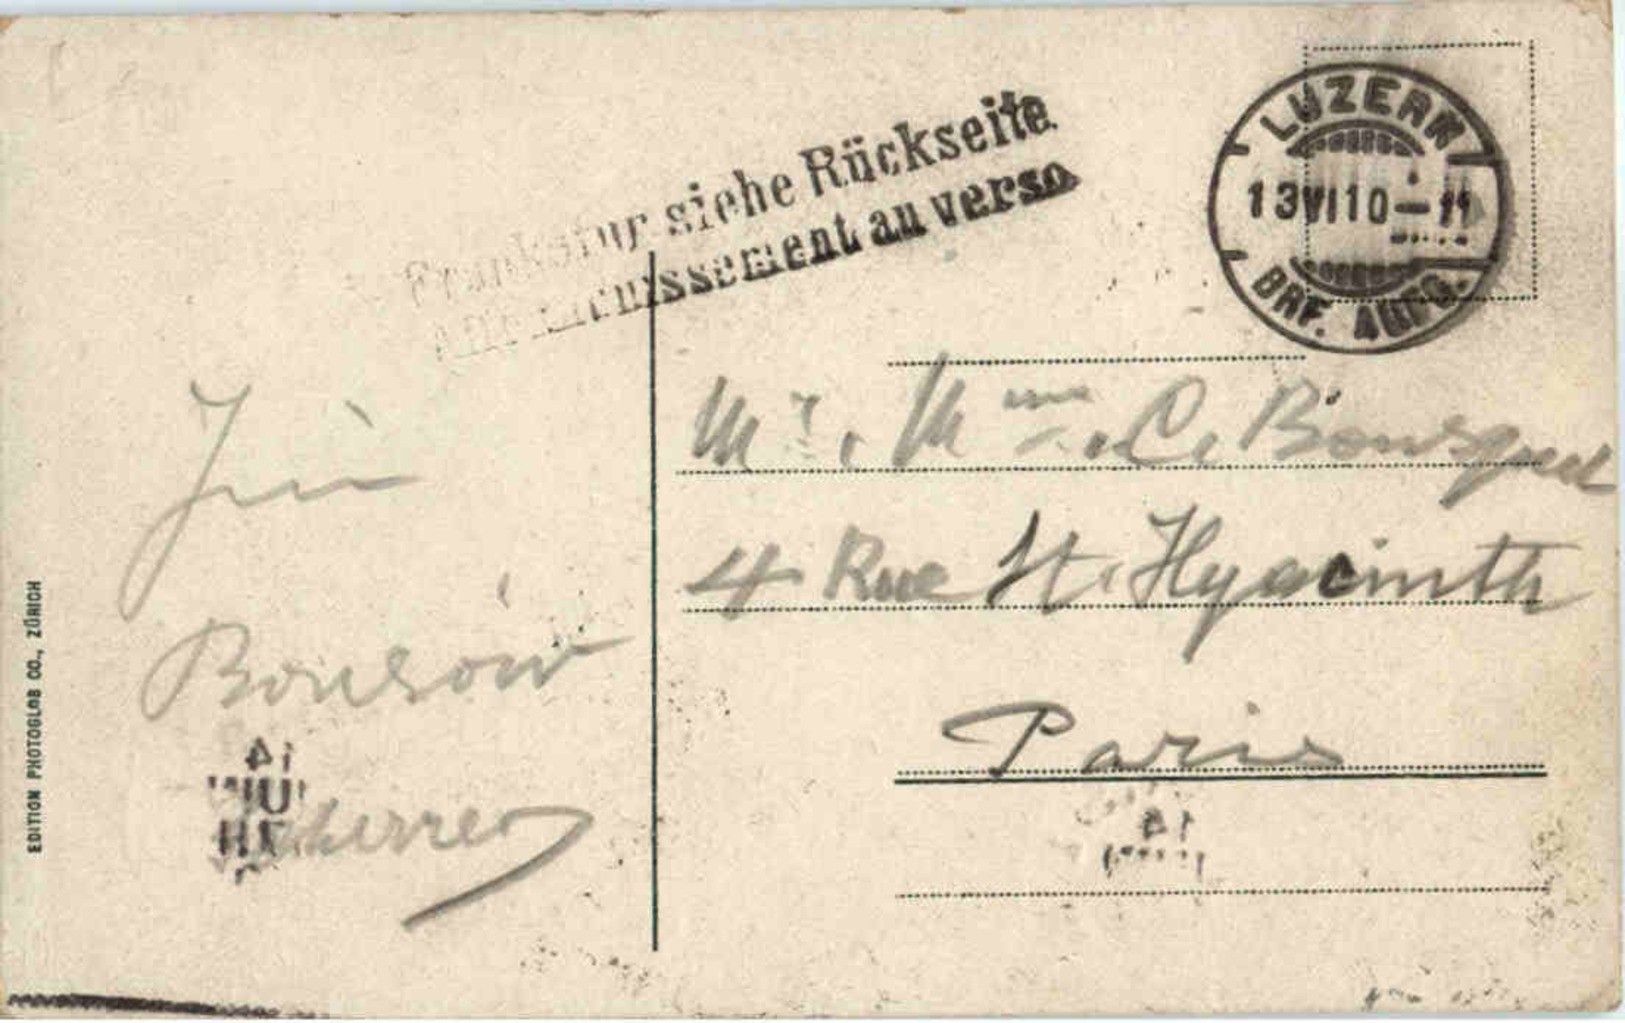 Frankatur siehe Rückseite
Affranchissement au verso
LUZERN
13 VI 10 — 11
BRF. AUFG.
Mr. Mme. C. Bousquet
4 Rue St. Hyacinth
Paris
EDITION PHOTOGLOB CO., ZÜRICH